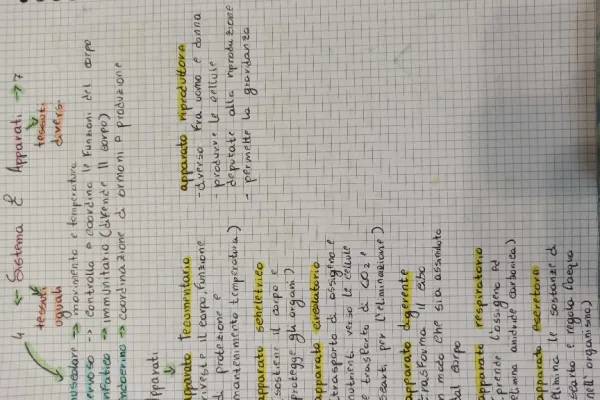 4 ← Sistema E Apparati → 7
tessuti uguali
tessuti diversi
muscolare → movimento e temperatura
nervoso → controlla e coordina le funzioni del corpo
linfatico → immunitario (difende il corpo)
endocrino → coordinazione d ormoni e produzione
Apparati
apparato tecumentario
riveste il corpo, funzione
di protezione e
mantenimento temperatura)
apparato scheletrico
sostiene il corpo e
protegge gli organi)
apparato circolatorio
trasporto di ossigeno e
nutrienti verso le cellule
e trasporto di CO2 e
scarti, per l'eliminazione)
apparato digerente
trasforma il cibo
in modo che sia assimilato
dal corpo
apparato respiratorio
prende l'ossigeno ed
elimina anidride carbonica)
apparato escretore
elimina le sostanze di
scarto e regola l'acqua
nell'organismo)
apparato riproduttore
- diverso fra uomo e donna
- produrre le cellule
deputate alla riproduzione
- permette la gravidanza